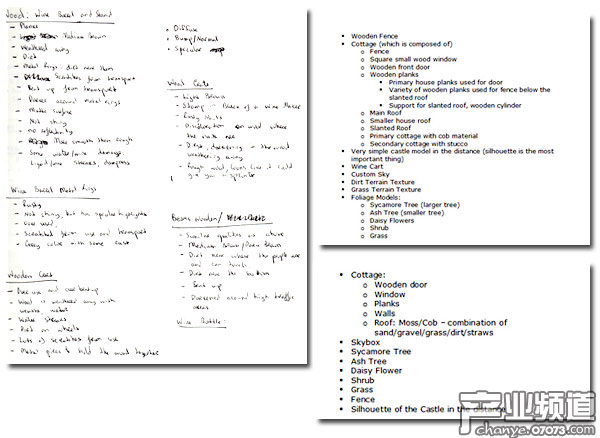 Wood: Wine Barrel and Stand
- Planks
- Medium Brown
- Weathered away
- Dirt
- Metal rings: dirt near them
- Scratches from transport
- Beat up from transport
- Darker around metal rings
- Matte surface
- Not shiny
- no reflectivity
- More smooth than rough
- Some water/wine damage.
Liquid/wine streaks, dampness
Wine Barrel Metal Rings
- Rusty
- Not shiny, but has specular highlights
- Over used
- Scratched from use and transport
- Grey color with some rust
Wooden Cart
- Over use and over beat up
- Wood is weathered away with
- Water streaks
- Dirt on wheels
- Lots of scratches from use
- Metal pieces to hold the wood together
• Diffuse
• Bump/Normal
• Specular
- Light Brown
- Rusty
- Discoloration on wood where
- Dirt, darkening - the wood
weathering away
- Rough wood, looks like it could
give you a splinter
Beams Wooden/
- Similar qualities as above
- Medium Brown/Dark Brown
- Dirt near where the people are
and can touch
- Dirt near the bottom
- Beat up
- Darkened around high traffic
areas
Wine Bottle:
• Wooden Fence
• Cottage (which is composed of)
o Fence
o Square small wood window
o Wooden front door
o Wooden planks
▪ Primary house planks used for door
▪ Variety of wooden planks used for fence below the
slanted roof
▪ Support for slanted roof, wooden cylinder
o Main Roof
o Smaller house roof
o Slanted Roof
o Primary cottage with cob material
o Secondary cottage with stucco
• Very simple castle model in the distance (silhouette is the most
important thing)
• Wine Cart
• Custom Sky
• Dirt Terrain Texture
• Grass Terrain Texture
• Foliage Models:
o Sycamore Tree (larger tree)
o Ash Tree (smaller tree)
o Daisy Flowers
o Shrub
o Grass
• Cottage:
o Wooden door
o Window
o Planks
o Walls
o Roof: Moss/Cob - combination of
sand/gravel/grass/dirt/straws
• Skybox
• Sycamore Tree
• Ash Tree
• Daisy Flower
• Shrub
• Grass
• Fence
• Silhouette of the Castle in the distance
产业频道
chanye.07073.com